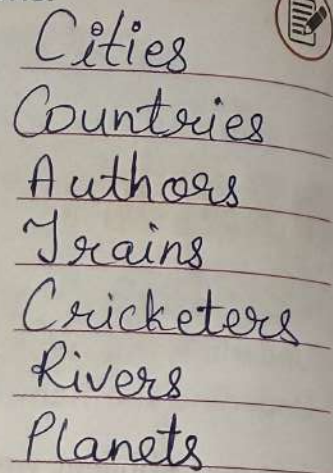 Cities
Countries
Authors
Trains
Cricketers
Rivers
Planets